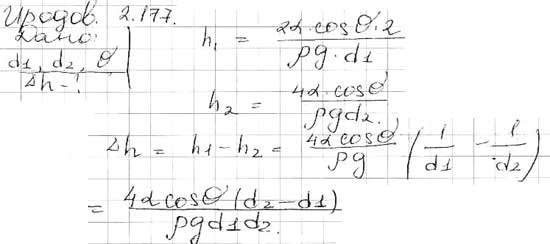 Иродов. 2.177.
Дано:
d1, d2, θ
Δh - ?
h₁ = 2α·cosθ·2 / ρg·d1
h₂ = 4α·cosθ / ρgd2.
Δh = h1 - h2 = 4αcosθ / ρg (1/d1 - 1/d2)
= 4αcosθ(d2-d1) / ρgd1d2.